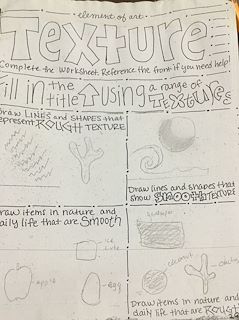 element of art
Texture
Complete the worksheet. Reference the front if you need help!
Fill in the title ↑ using a range of TEXTURES
Draw LINES and SHAPES that
represent ROUGH TEXTURE
Draw lines and shapes that
show SMOOTH TEXTURE
Draw items in nature and
daily life that are SMOOTH
ice
cube
apple
egg
coconut
Draw items in nature and
daily life that are ROUGH